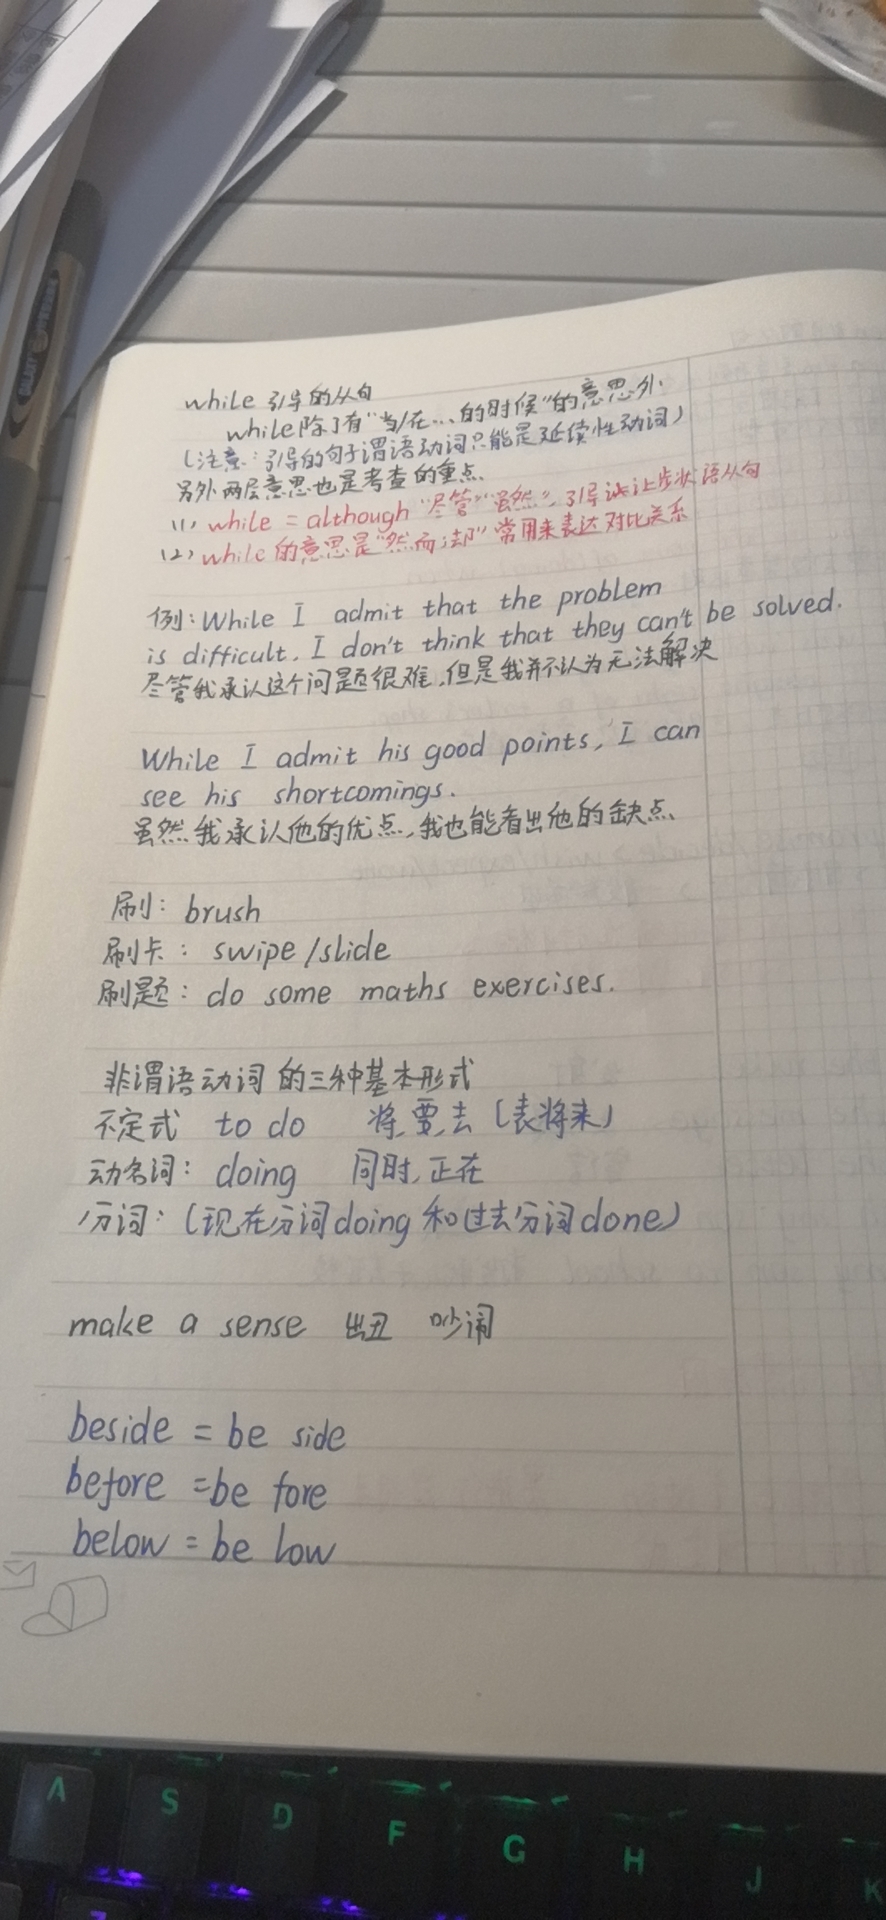 while 引导的从句
while除了有"当/在…的时候"的意思外
(注意:引导的句子谓语动词只能是延续性动词)
另外两层意思也是考查的重点.
(1) while = although "尽管""虽然",引导 让步状语从句
(2) while 的意思是"然而;却"常用来表达对比关系
例:While I admit that the problem
is difficult, I don't think that they can't be solved.
尽管我承认这个问题很难,但是我并不认为无法解决
While I admit his good points, I can
see his shortcomings.
虽然我承认他的优点,我也能看出他的缺点.
刷: brush
刷卡: swipe/slide
刷题: do some maths exercises.
非谓语动词的三种基本形式
不定式 to do 将,要,去(表将来)
动名词: doing 同时,正在
分词:(现在分词doing和过去分词done)
make a sense 出丑 吵闹
beside = be side
before =be fore
below = be low
A S D F G H J K